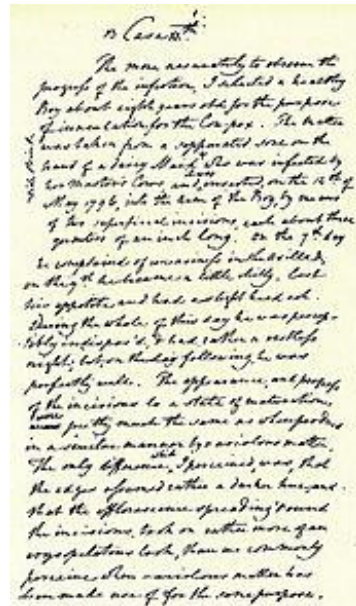 Case
The more accurately to observe the
progress of the infection, I selected a healthy
Boy about eight years old for the purpose
of inoculation for the Cow pox. The matter
was taken from a suppurated sore on the
hand of a dairy Maid who was infected by
her Master's Cows and inserted, on the 14th of
May 1796, into the arm of the Boy, by means
of two superficial incisions, each about three
quarters of an inch long. On the 7th day
he complained of uneasiness in the axilla &
on the 9th he became a little chilly, lost
his appetite and had a slight head ach.
During the whole of this day he was percep-
tibly indispos'd, & had rather a restless
night; but, on the day following, he was
perfectly well. The appearance, and progress
of the incisions to a state of maturation,
were pretty much the same as when produc'd
in a similar manner by variolous matter.
The only difference I perceiv'd, was, that
the edges assumed rather a darker hue, and
that the efflorescence spreading round
the incisions, took on rather more of an
erysipelatous look, than we commonly
perceive when variolous matter has
been made use of for the same purpose.